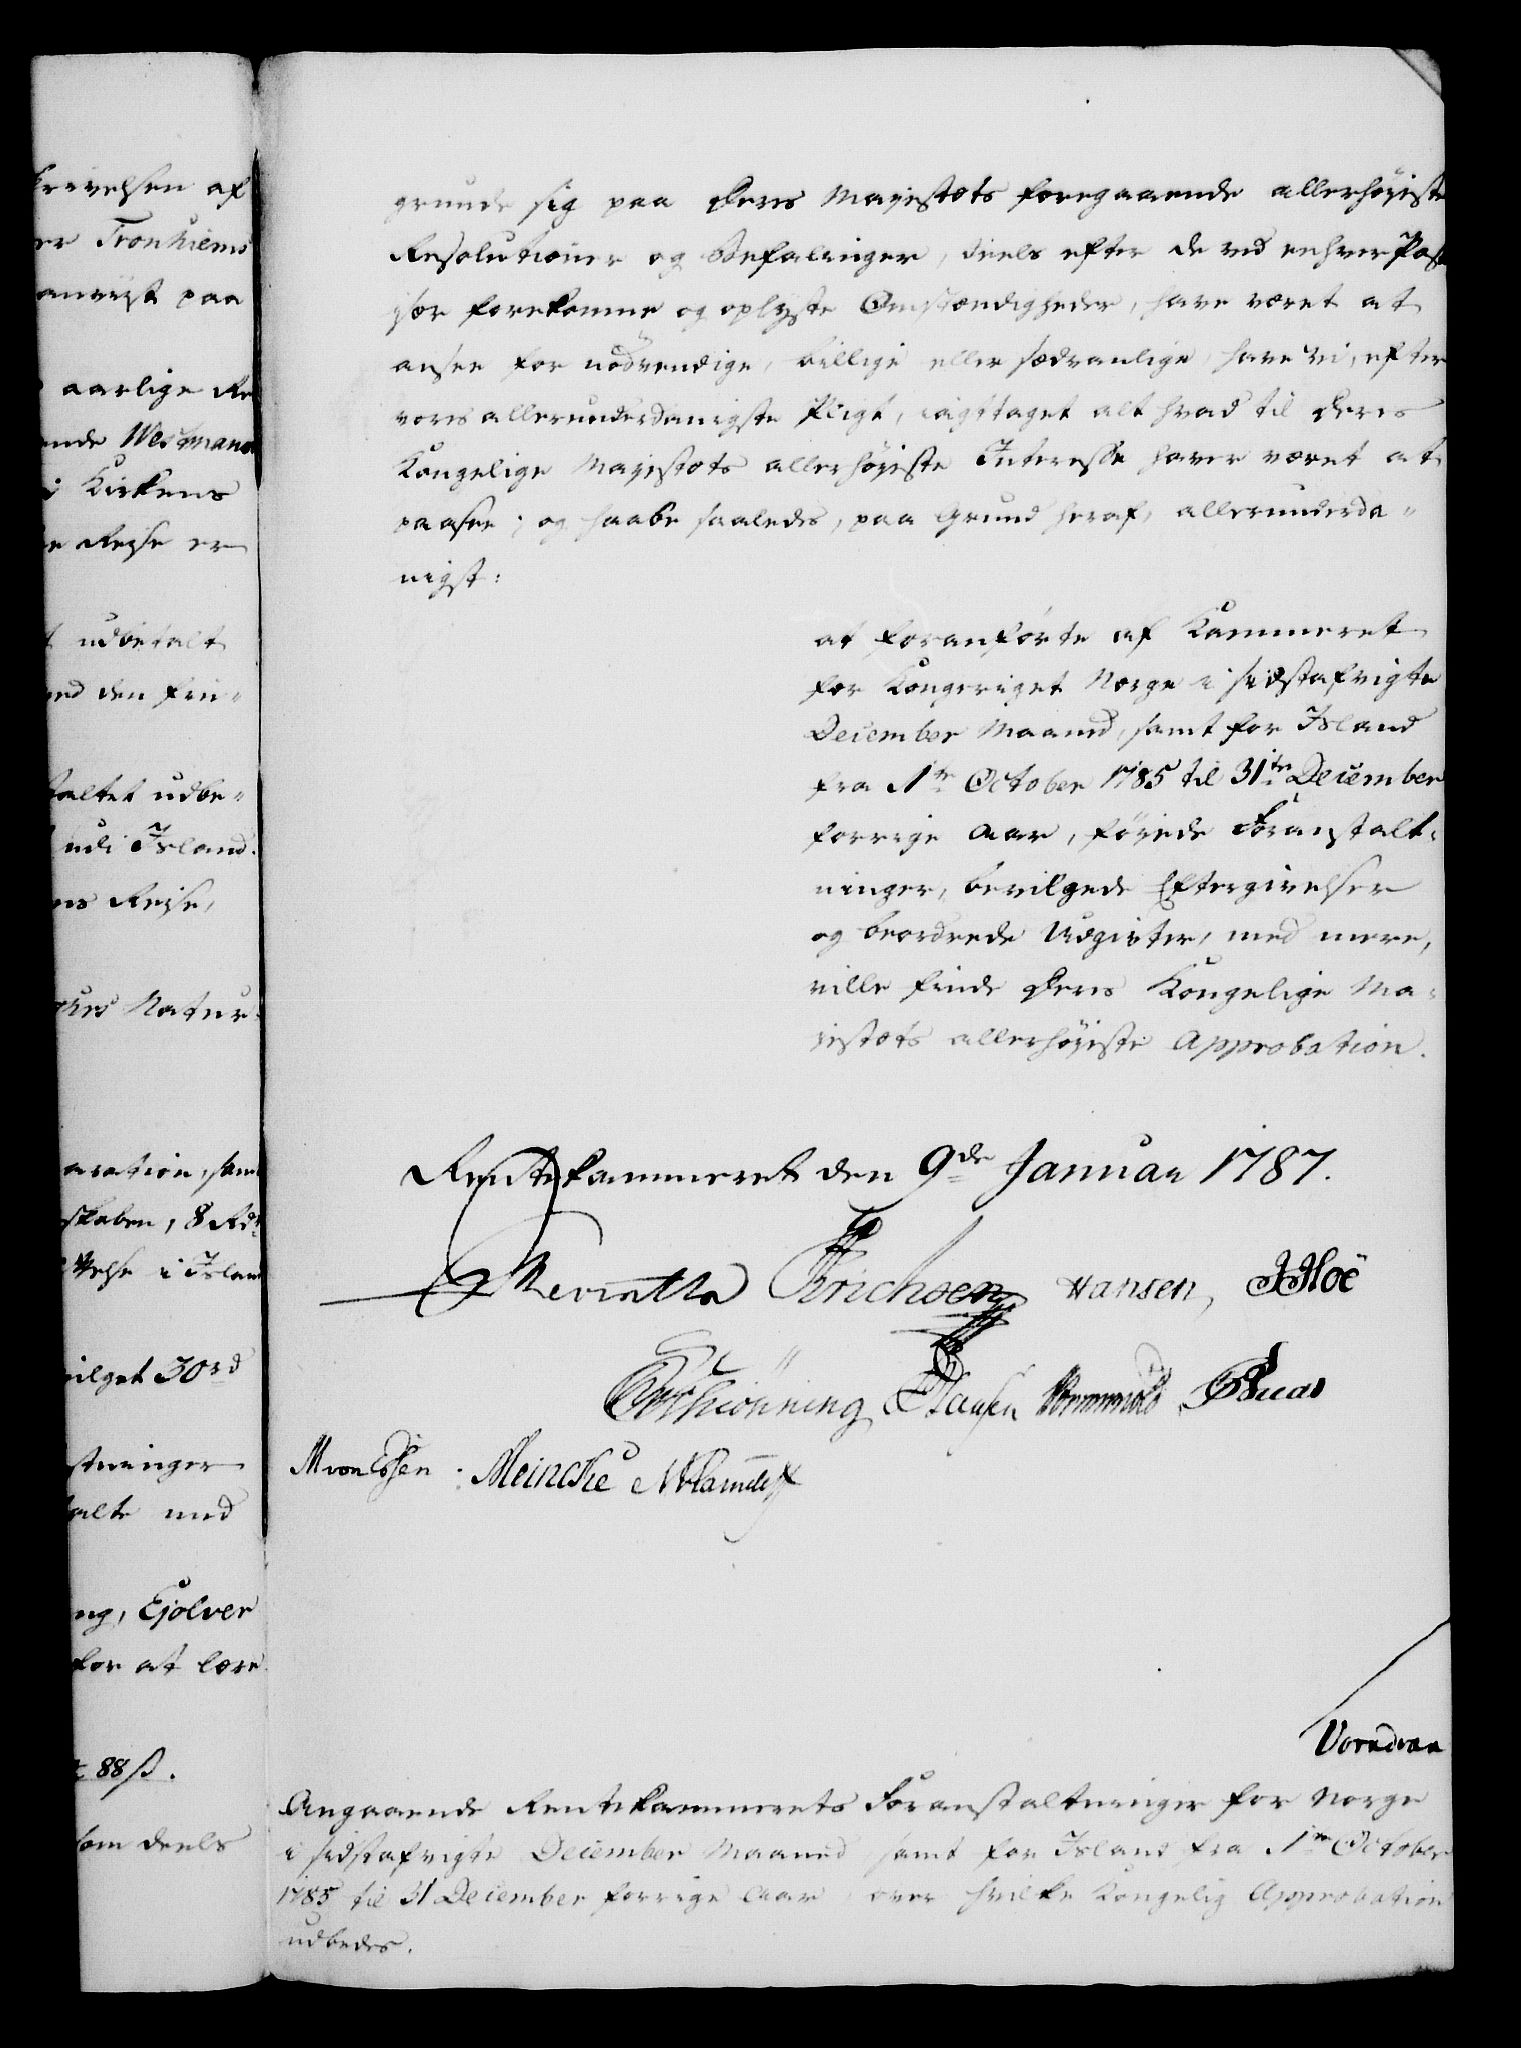 krivelsen af
er Tronhiems
anviist paa
aarlige Re
ende Westmana
i Kirkens
e Reise er
t udbetalt
ed den frie-
taltet udbe-
udi Island.
ns Reise,
Natur-
aration, samt
skaben, 8 Rdr
else i Island
vilget 30 rd
stninger
alte med
ng, Ejolver
for at lære
88 ß.
som deels
grunde sig paa Deres Majestæts foregaaende allerhøyeste
Resolutioner og Befalinger, deels efter de ved enhver Post
især forekomne og oplyste Omstændigheder, have været at
ansee for nødvendige, billige eller sædvanlige, have vi, efter
vores allerunderdanigste Pligt, iagttaget alt hvad til Deres
Kongelige Majestæts allerhøyeste Interesse haver været at
paasee; og haabe saaledes, paa Grund heraf, allerunderda-
nigst:
at foranførte af Kammeret
for Kongeriget Norge i sidstafvigte
December Maaned, samt for Island
fra 1te October 1785 til 31te December
forrige Aar, føyede Foranstalt-
ninger, bevilgede Eftergivelser
og beordrede Udgivter, med mere,
ville finde Deres Kongelige Ma-
jestæts allerhøyeste Approbation.
Rentekammeret den 9de Januar 1787.
Reventlow Erichsen Hansen,
Schiönning Clausen Wormskiold
M von Essen. Meincke
Voredraa
Angaaende Rentekammerets Foranstaltninger for Norge
i sidstafvigte December Maaned, samt for Island fra 1te October
1785 til 31 December forrige Aar, over hvilke Kongelig Approbation
udbedes.